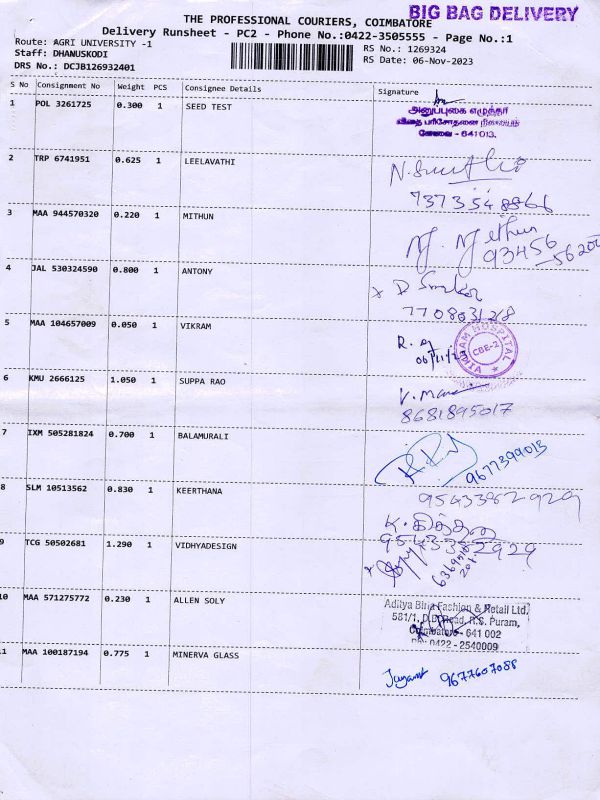 BIG BAG DELIVERY
THE PROFESSIONAL COURIERS, COIMBATORE
Delivery Runsheet - PC2 - Phone No.:0422-3505555 - Page No.:1
Route: AGRI UNIVERSITY -1
RS No.: 1269324
Staff: DHANUSKODI
RS Date: 06-Nov-2023
DRS No.: DCJB126932401
S No Consignment No Weight PCS Consignee Details Signature
1 POL 3261725 0.300 1 SEED TEST
அனுப்புகை எழுத்தர்
விதை பரிசோதனை நிலையம்
கோவை - 641013.
2 TRP 6741951 0.625 1 LEELAVATHI
7373548866
3 MAA 944570320 0.220 1 MITHUN
M. Methun
93456
56200
4 JAL 530324590 0.800 1 ANTONY
7708031218
5 MAA 104657009 0.050 1 VIKRAM
06/11/23
VIKRAM HOSPITAL
CBE-2
6 KMU 2666125 1.050 1 SUPPA RAO
8681895017
7 IXM 505281824 0.700 1 BALAMURALI
9677399013
8 SLM 10513562 0.830 1 KEERTHANA
9543382929
9 TCG 50502681 1.290 1 VIDHYADESIGN
9543382929
10 MAA 571275772 0.230 1 ALLEN SOLY
Aditya Birla Fashion & Retail Ltd,
581/1, D.B. Road, R.S. Puram,
Coimbatore - 641 002
Ph: 0422 - 2540009
11 MAA 100187194 0.775 1 MINERVA GLASS
9677607088